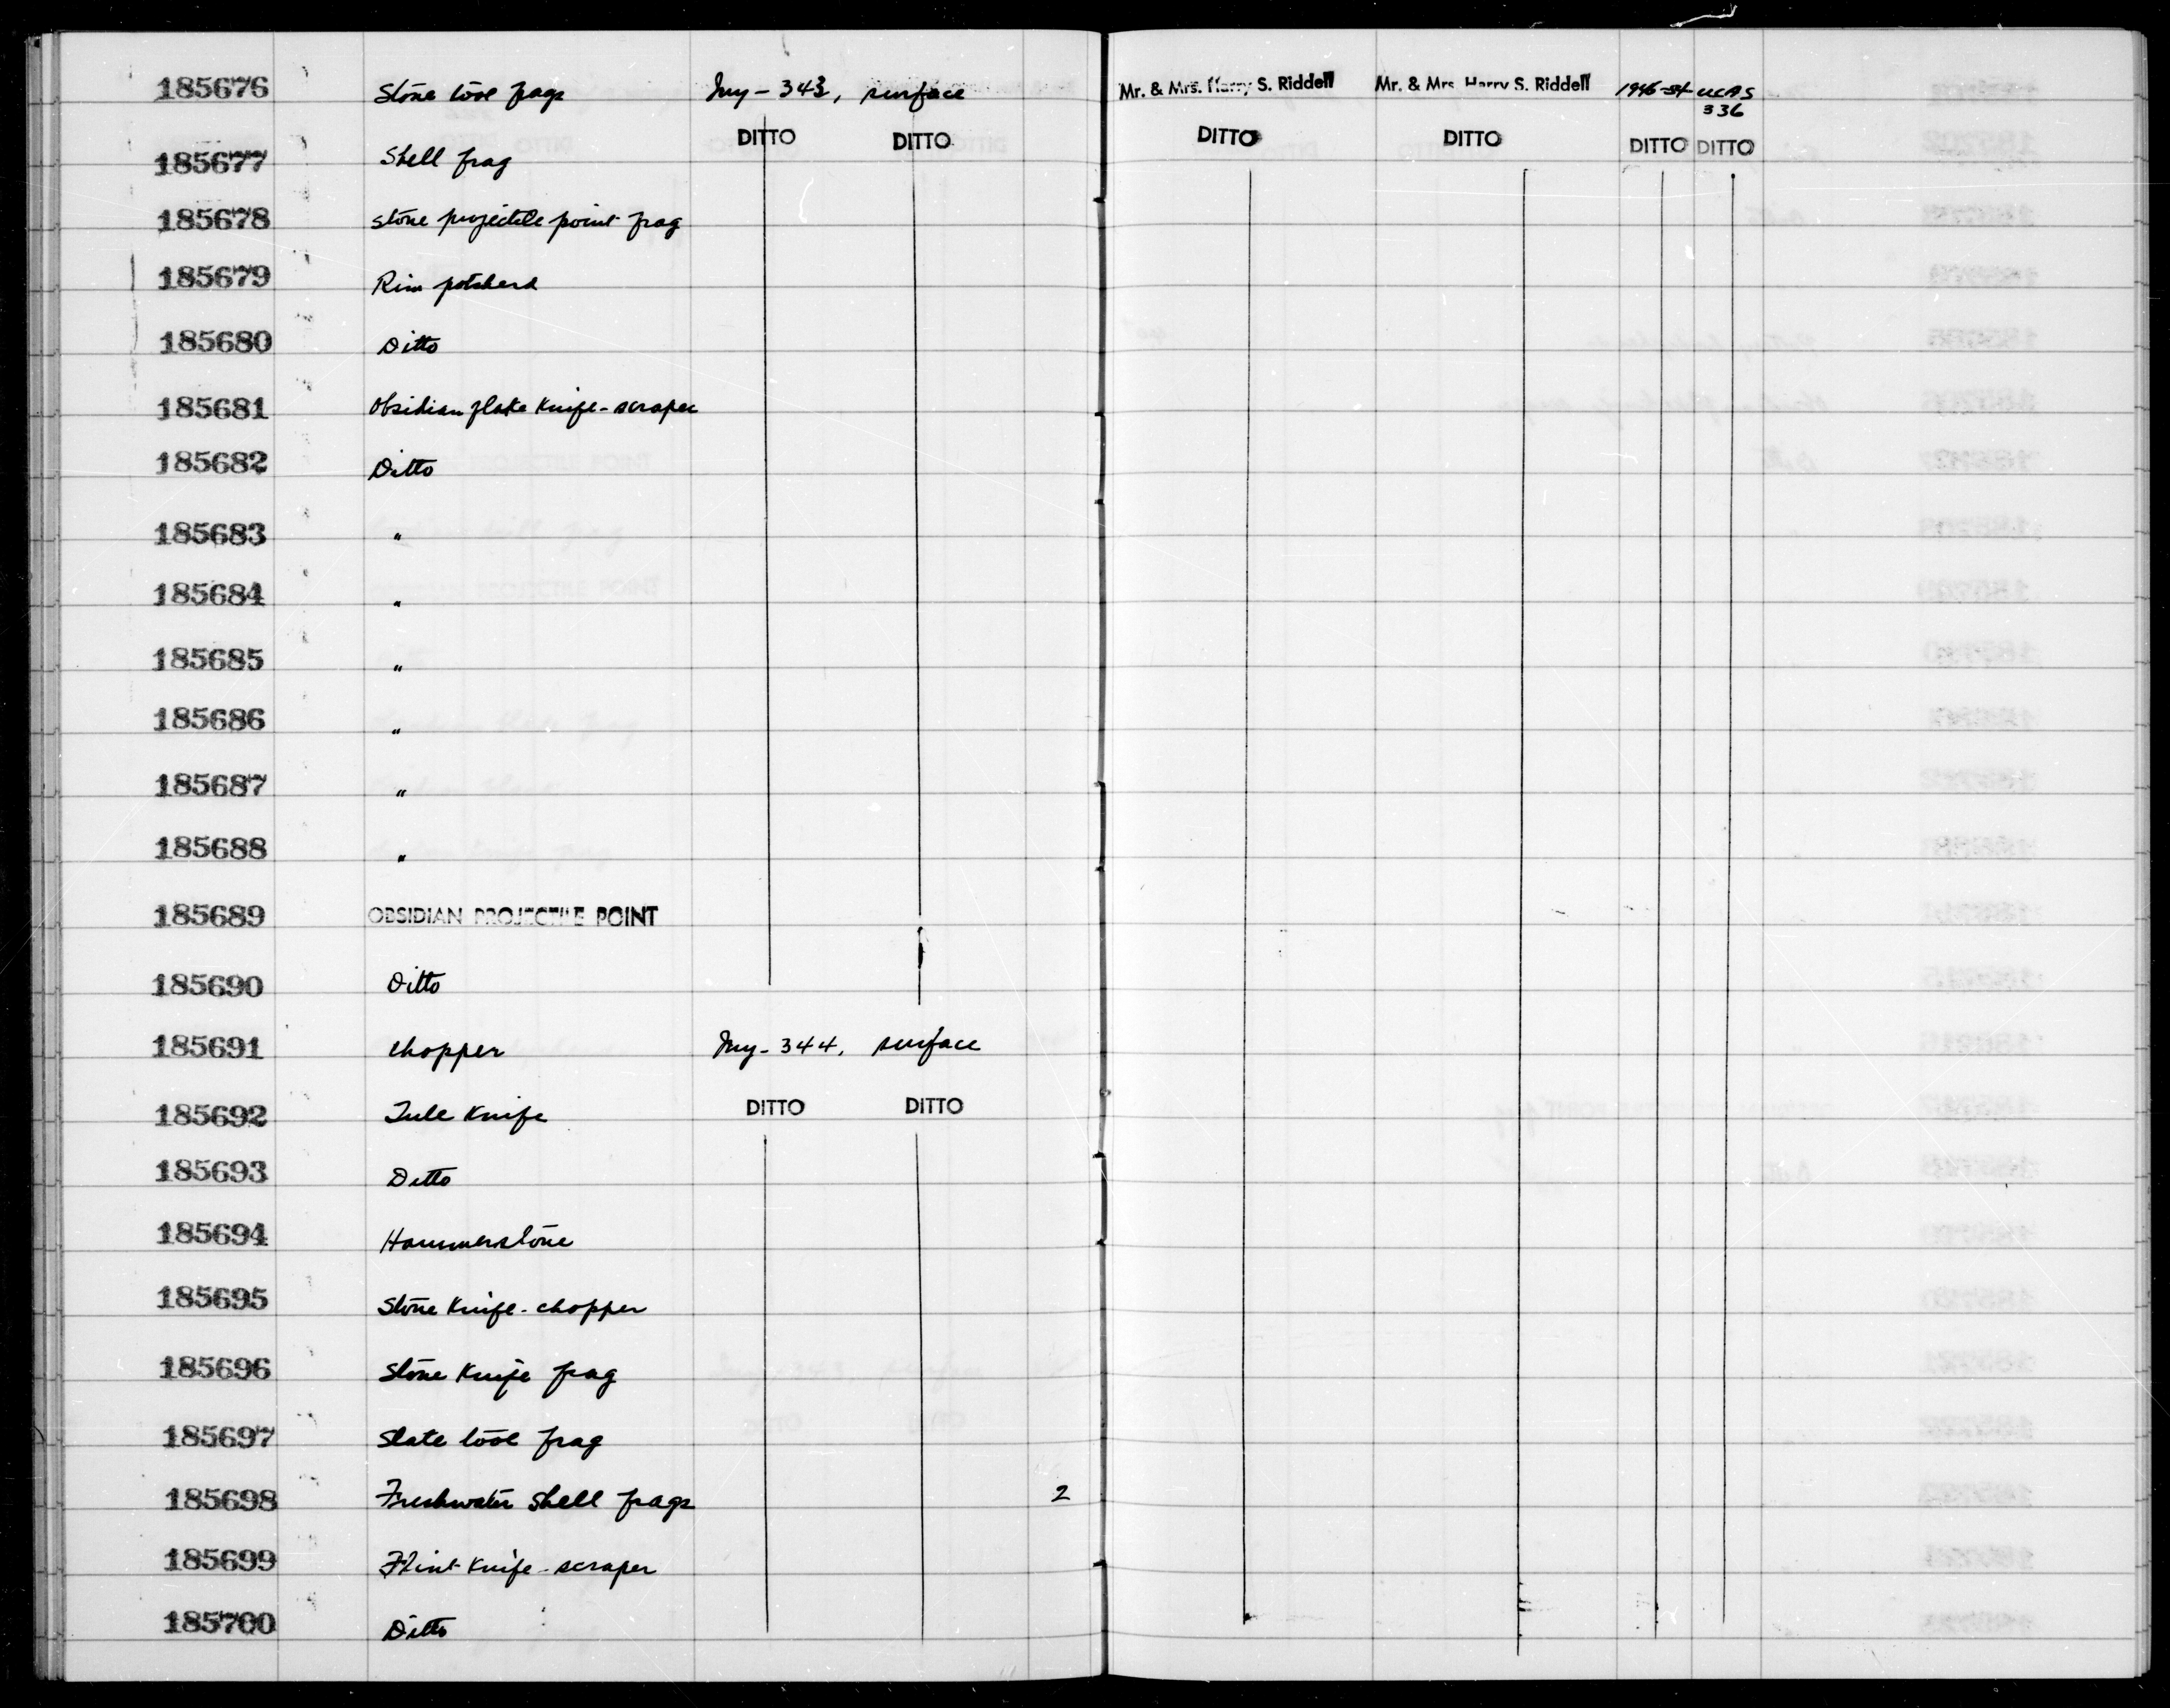 185676 Stone tool frags Iny - 343, surface Mr. & Mrs. Harry S. Riddell Mr. & Mrs. Harry S. Riddell 1946-54 UCAS
336
DITTO DITTO DITTO DITTO DITTO DITTO
185677 Shell frag
185678 Stone projectile point frag
185679 Rim potsherd
185680 Ditto
185681 Obsidian flake knife-scraper
185682 Ditto
185683 "
185684 "
185685 "
185686 "
185687 "
185688 "
185689 OBSIDIAN PROJECTILE POINT
185690 Ditto
185691 Chopper Iny - 344, surface
185692 Tule knife DITTO DITTO
185693 Ditto
185694 Hammerstone
185695 Stone knife - chopper
185696 Stone knife frag
185697 Slate tool frag
185698 Freshwater shell frags 2
185699 Flint knife - scraper
185700 Ditto